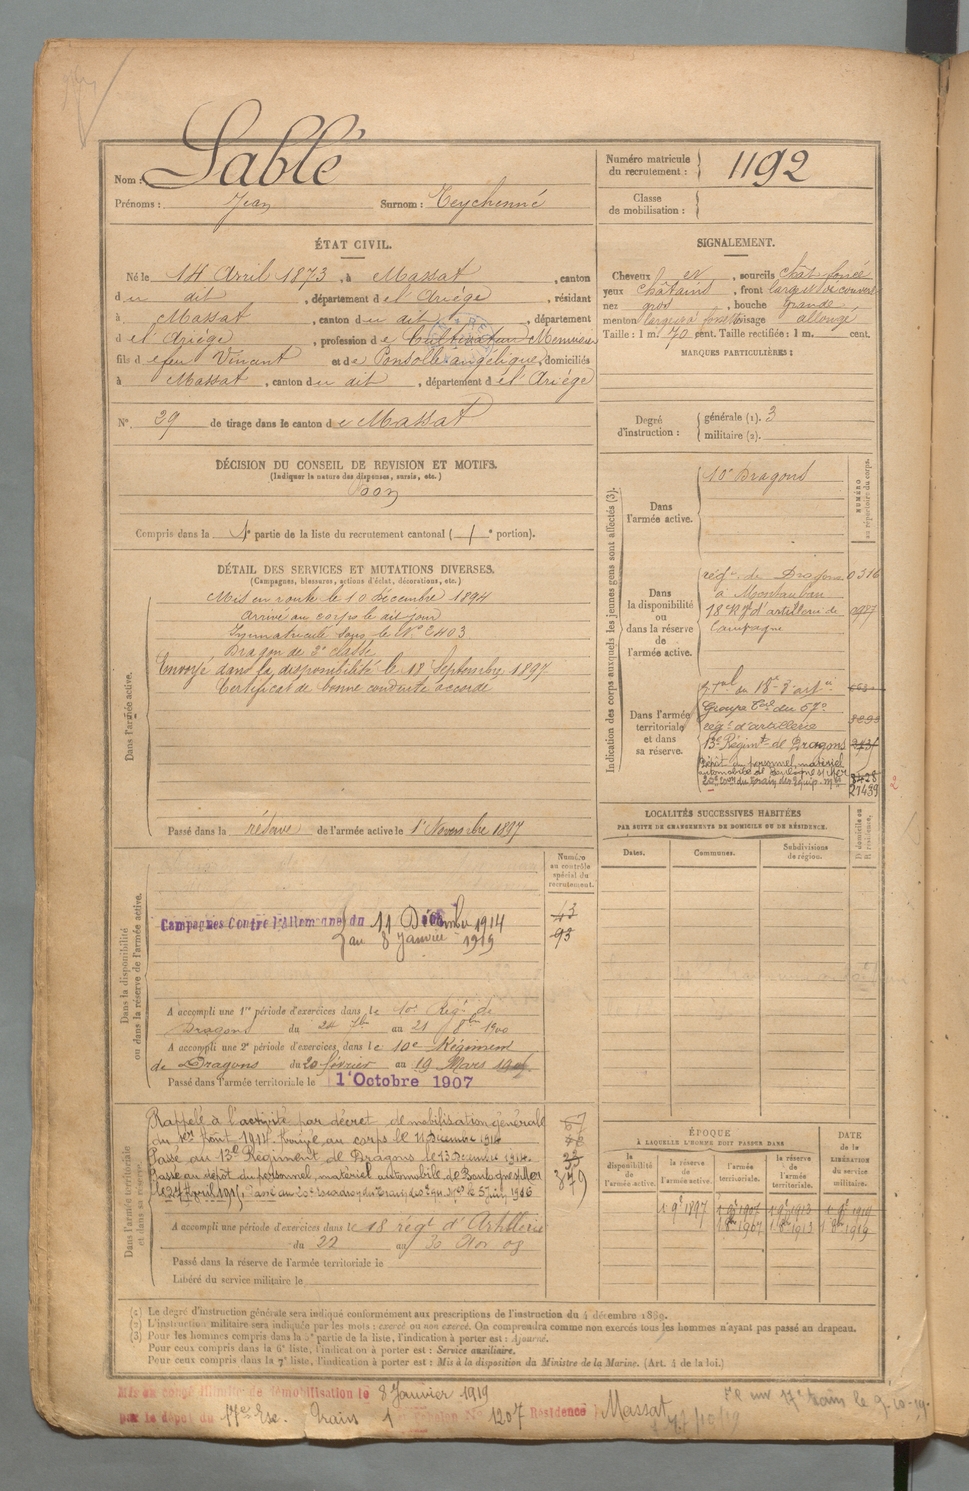 Nom : Sablé
Prénoms : Jean Surnom : Teychenné
Numéro matricule du recrutement : 1192
Classe de mobilisation :
ÉTAT CIVIL.
Né le 14 Avril 1873, à Massat, canton
du dit, département de l'Ariège, résidant
à Massat, canton du dit, département
de l'Ariège, profession de Cultivateur Menuisier
fils de feu Vincent et de Ponsolle angélique, domiciliés
à Massat, canton du dit, département de l'Ariège
N° 29 de tirage dans le canton de Massat
SIGNALEMENT.
Cheveux et, sourcils chât. foncé
yeux châtains, front large et découvert
nez gros, bouche grande
menton large visage allongé
Taille : 1 m. 70 cent. Taille rectifiée : 1 m. cent.
MARQUES PARTICULIÈRES :
Degré d'instruction : générale (1). 3
militaire (2).
DÉCISION DU CONSEIL DE REVISION ET MOTIFS.
(Indiquer la nature des dispenses, sursis, etc.)
Bon
Compris dans la 1e partie de la liste du recrutement cantonal (1e portion).
DÉTAIL DES SERVICES ET MUTATIONS DIVERSES.
(Campagnes, blessures, actions d'éclat, décorations, etc.)
Dans l'armée active.
Mis en route le 10 décembre 1894
Arrivé au corps le dit jour
Immatriculé sous le N° 2403
Dragon de 2e classe
Envoyé dans la disponibilité le 18 Septembre 1897
Certificat de bonne conduite accordé
Passé dans la réserve de l'armée active le 1er Novembre 1897
Indication des corps auxquels les jeunes gens sont affectés (3).
NUMÉRO au répertoire du corps.
Dans l'armée active.
10e Dragons
Dans la disponibilité ou dans la réserve de l'armée active.
régt de Dragons 0316
à Montauban
18e Rgt d'artillerie de
Campagne
Dans l'armée territoriale et dans sa réserve.
Groupe du 57e
régt d'artillerie
13e Régimt de Dragons
Dépôt du personnel, matériel
automobile de Boulogne s/ mer
20e Escon du Train des Equip. 21439
LOCALITÉS SUCCESSIVES HABITÉES
PAR SUITE DE CHANGEMENTS DE DOMICILE OU DE RÉSIDENCE.
Dates. Communes. Subdivisions de région. D. domicile ou R. résidence.
Dans la disponibilité ou dans la réserve de l'armée active.
Numéro au contrôle spécial du recrutement.
43
93
Campagnes Contre l'Allemagne du 11 Décembre 1914
au 8 Janvier 1919
A accompli une 1re période d'exercices dans le 10e Régt de
Dragons du 24 7bre au 21 8bre 1900
A accompli une 2e période d'exercices dans le 10e Régiment
de Dragons du 20 février au 19 Mars
Passé dans l'armée territoriale le 1 Octobre 1907
Dans l'armée territoriale et dans sa réserve.
Rappelé à l'activité par décret de mobilisation générale
du 1er Août 1914. Arrivé au corps le 11 Décembre 1914
Passé au 13e Régiment de Dragons le 13 Décembre 1914.
Passé au dépôt du personnel, matériel automobile de Boulogne s/Mer
le 27 Avril 1915. Passé au 20e Escadron du Train des Equip. le 5 Juin 1916
A accompli une période d'exercices dans le 18 régt d'Artillerie
du 22 au 30 Nov 08
Passé dans la réserve de l'armée territoriale le
Libéré du service militaire le
ÉPOQUE
À LAQUELLE L'HOMME DOIT PASSER DANS
DATE de la LIBÉRATION du service militaire.
la disponibilité de l'armée active. la réserve de l'armée active. l'armée territoriale. la réserve de l'armée territoriale.
1 9e 1897 1 9e 1907 1 9e 1913 1 9e 1919
1 8bre 1907 1 8bre 1913 1 8bre 1919
(1) Le degré d'instruction générale sera indiqué conformément aux prescriptions de l'instruction du 4 décembre 1889.
(2) L'instruction militaire sera indiquée par les mots : exercé ou non exercé. On comprendra comme non exercés tous les hommes n'ayant pas passé au drapeau.
(3) Pour les hommes compris dans la 5e partie de la liste, l'indication à porter est : Ajourné.
Pour ceux compris dans la 6e liste, l'indication à porter est : Service auxiliaire.
Pour ceux compris dans la 7e liste, l'indication à porter est : Mis à la disposition du Ministre de la Marine. (Art. 4 de la loi.)
Mis en congé illimité de démobilisation le 8 Janvier 1919
par le dépôt du 17e Esc. Train 1er échelon N° 1207 Résidence Massat